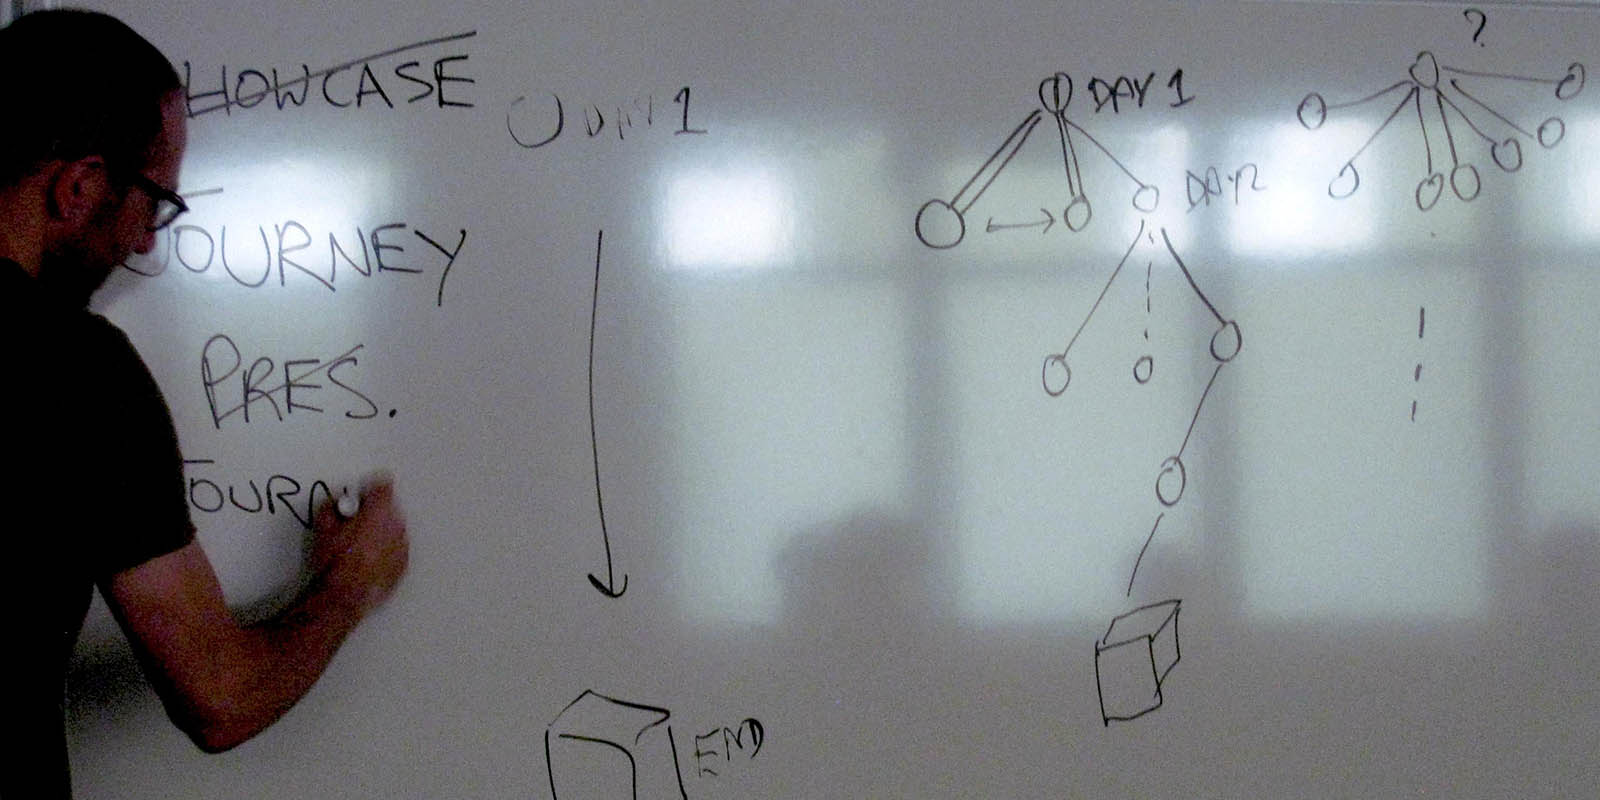 HOWCASE
JOURNEY
PRES.
JOURN
DAY 1
END
DAY 1
DAY 2
?